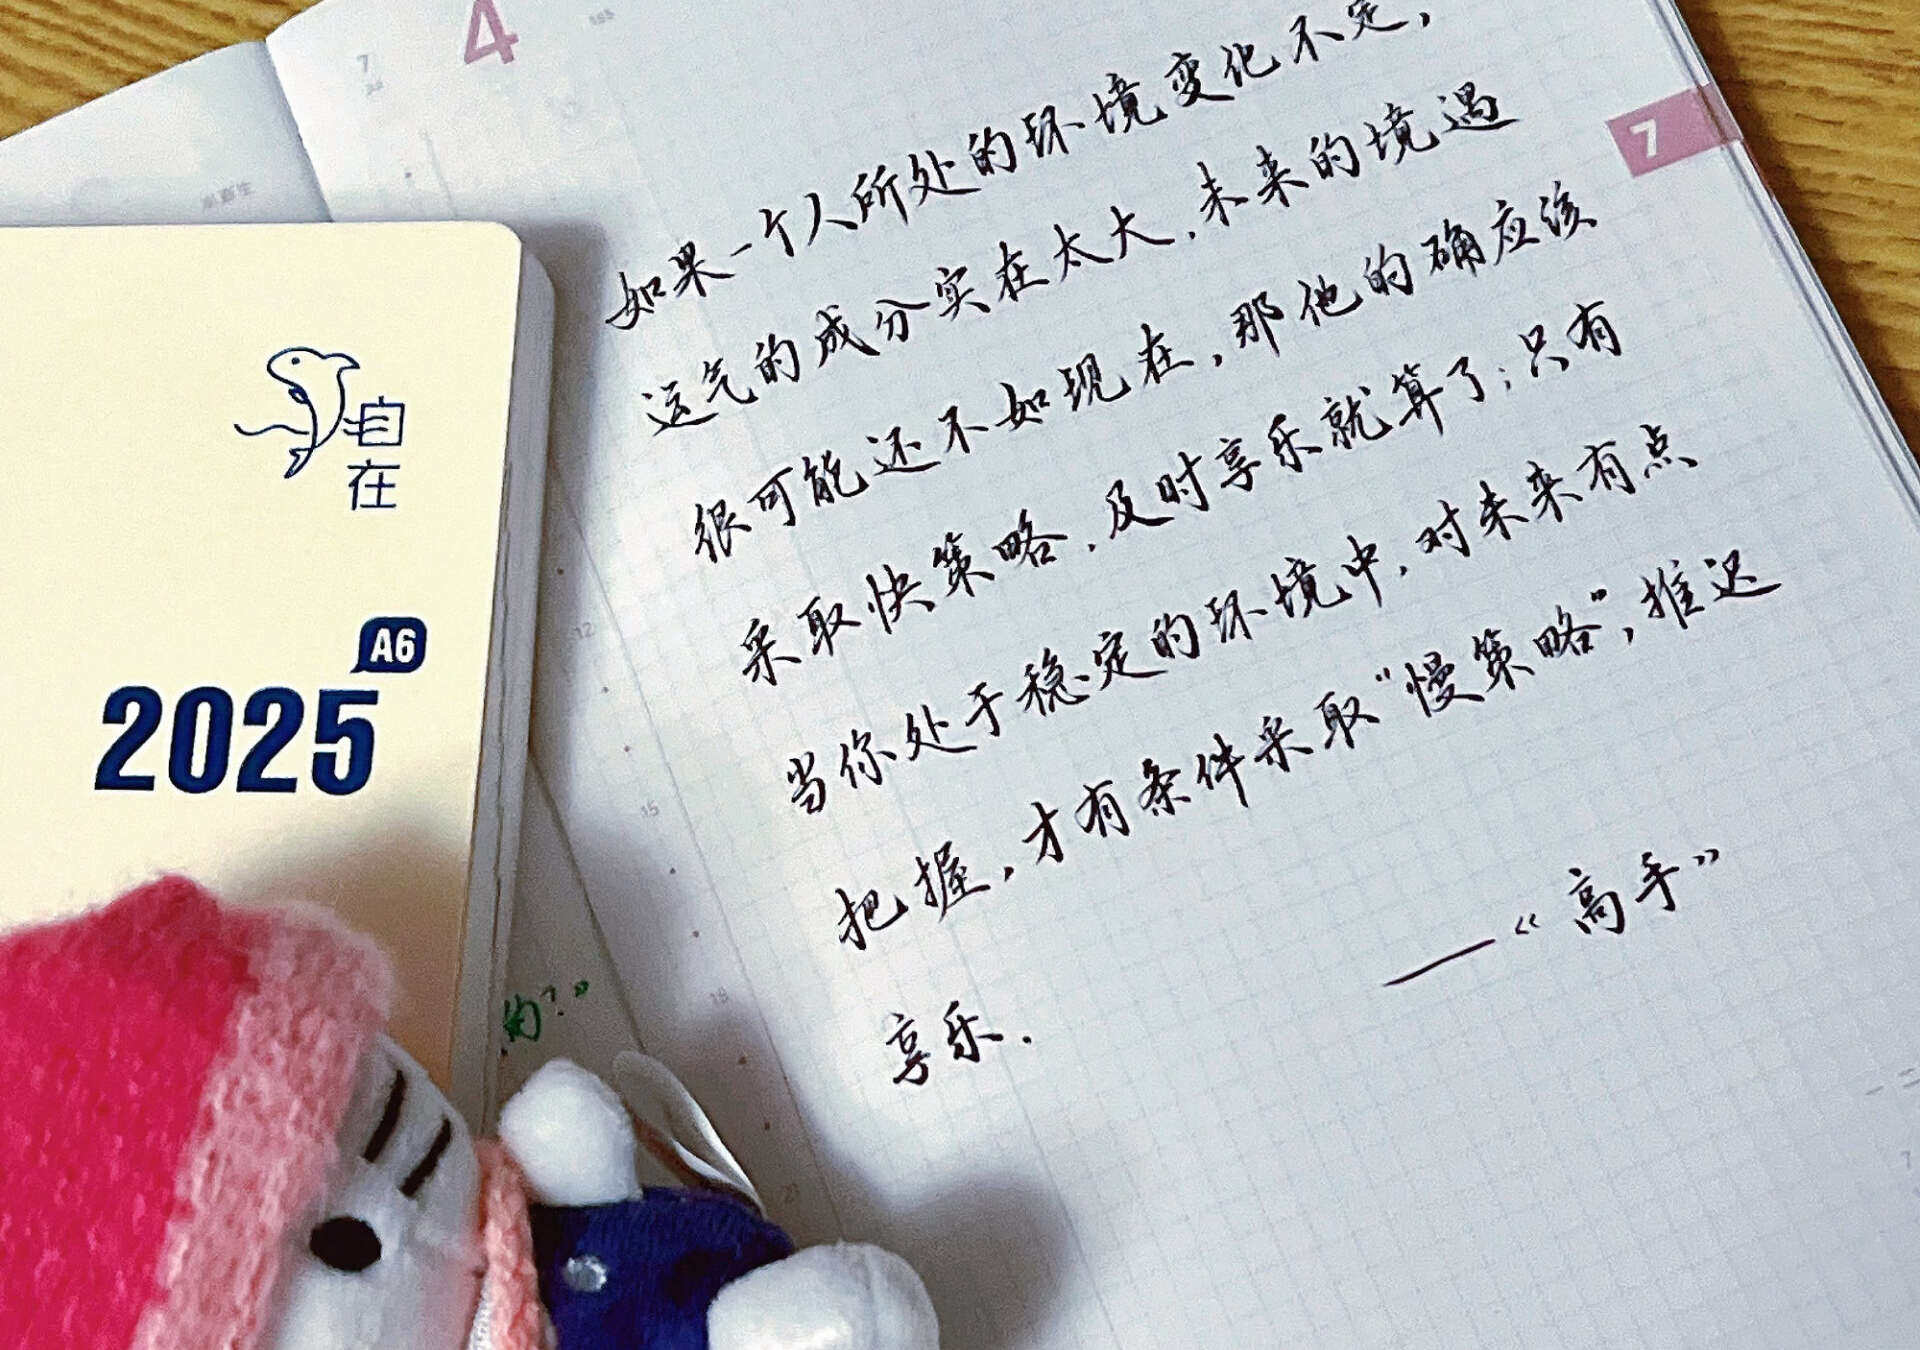 4
7
如果一个人所处的环境变化不定，
运气的成分实在太大，未来的境遇
很可能还不如现在，那他的确应该
采取快策略，及时享乐就算了；只有
当你处于稳定的环境中，对未来有点
把握，才有条件采取“慢策略”，推迟
享乐.
——“高手”
自
在
A6
2025
的？”
12
15
18
21
7